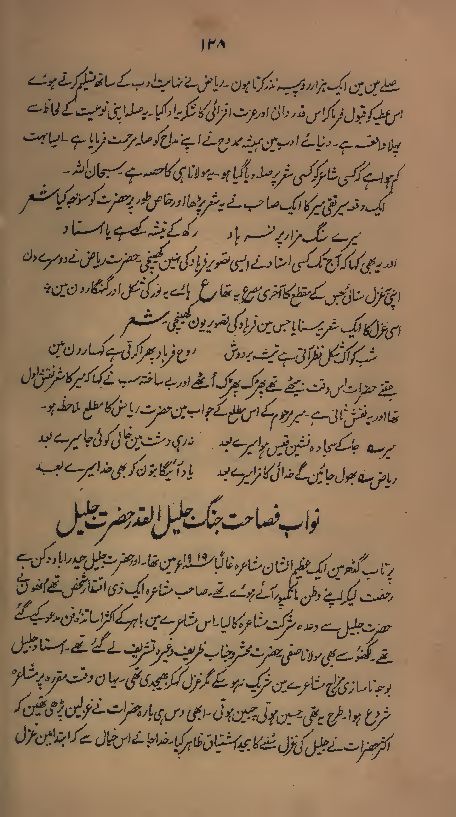 ۱۳۸
صلے میں میں ایک ہزار روپیہ نذر کرتا ہون ۔ ریاض نے نہایت ادب کے ساتھ تسلیم کرتے ہوئے
اس عطیہ کو قبول فرماکر اس قدر دانی اور عزت افزائی کا شکریہ ادا کیا ۔ یہ صلہ اپنی نوعیت کے لحاظ سے
پہلا واقعہ ہے ۔ دنیائے ادب مین ہمیشہ ممدوح نے اپنے مداح کو صلہ مرحمت فرمایا ہے ۔ ایسا بہت
کم ہوا ہے کہ کسی شاعر کو کسی شعر پر صلہ دیا گیا ہو ۔ یہ مولانا ہی کا حصہ ہے ۔ سبحان اللہ ۔
ایک دفعہ میر تقی میر کا ایک صاحب نے یہ شعر پڑھا اور خاص طور پر حضرت کو متوجہ کیا شعر
میرے سنگ مزار پر فرہاد رکھ کے تیشہ کہے ہے یا استاد
اور یہ بھی کہا کہ آج تک کسی استاد نے ایسی تصویر فرہاد کی نہیں کھینچی حضرت ریاض نے دوسرے دن
اپنی غزل سنائی جس کے مقطع کا آخری مصرع یہ تھا ع ہائے یہ نور کی شکل اور گنہگارون مین
اسی غزل کا ایک شعر یہ سنایا جس مین فرہاد کی تصویر یون کھینچی شعر
شب کو اک شکل نظر آتی ہے تیشہ بر دوش روح فرہاد پھرا کرتی ہے کہسارون مین
جتنے حضرات اس وقت بیٹھے تھے پھڑک پھڑک اُٹھے اور بے ساختہ سب نے کہا کہ میر کا شعر نقش اول
تھا اور یہ نقش ثانی ہے ۔ میر مرحوم کے اس مطلع کے جواب مین حضرت ریاض کا مطلع ملاحظہ ہو ۔
میر آکے سجادہ نشین قیس ہوا میرے بعد نہ رہی دشت مین خالی کوئی جا میرے بعد
ریاض بھول جائین گے خدائی کا مزا میرے بعد یاد آئیگا بتون کو بھی خدا میرے بعد
نواب فصاحت جنگ جلیل القدر حضرت جلیل
پرتاب گڈھ مین ایک عظیم الشان مشاعرہ غالباً ۱۹۱۹ء مین تھا ۔ اور حضرت جلیل حیدرآباد دکن سے
رخصت لیکر اپنے وطن مانکپور آئے ہوئے تھے ۔ صاحب مشاعرہ ایک ذی اقتدار شخص تھے اُنھون نے
حضرت جلیل سے وعدہ شرکت مشاعرہ کا لیا ۔ اس مشاعرے مین باہر کے اکثر اساتذۂ فن مدعو کیے گئے
تھے ۔ لکھنؤ سے بھی مولانا صفی حضرت محشر و جناب ظریف وغیرہ تشریف لے گئے تھے ۔ استاد جلیل
بوجہ ناسازی مزاج مشاعرے مین شریک نہو سکے مگر غزل کہکر بھیجدی تھی ۔ یہان وقت مقررہ پر مشاعرہ
شروع ہوا ۔ طرح یہ تھی حسین ہوتی جبین ہوتی ۔ ابھی دس ہی بارہ حضرات نے غزلین پڑھی تھین کہ
اکثر حضرات نے جلیل کی غزل سننے کا بیحد اشتیاق ظاہر کیا ۔ خدا جانے اس خیال سے کہ ابتدا مین غزل